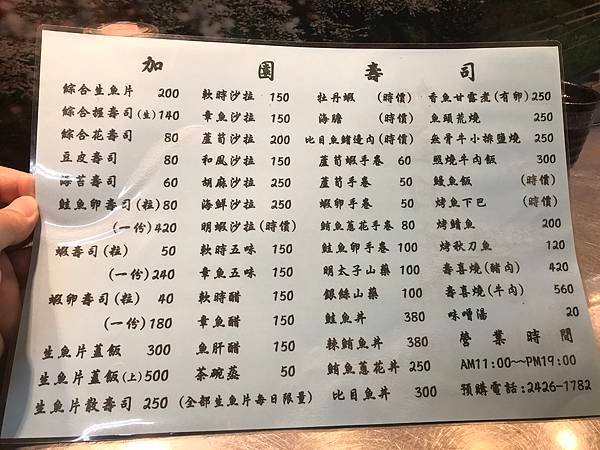 加園壽司
綜合生魚片 200
綜合握壽司(生)140
綜合花壽司 80
豆皮壽司 80
海苔壽司 60
鮭魚卵壽司(粒)80
(一份)420
蝦壽司(粒) 50
(一份)240
蝦卵壽司(粒) 40
(一份)180
生魚片蓋飯 300
生魚片蓋飯(上)500
生魚片散壽司 250 (全部生魚片每日限量)
軟時沙拉 150
章魚沙拉 150
蘆筍沙拉 200
和風沙拉 150
胡麻沙拉 250
海鮮沙拉 250
明蝦沙拉(時價)
軟時五味 150
章魚五味 150
軟時醋 150
章魚醋 150
魚肝醋 150
茶碗蒸 50
牡丹蝦 (時價)
海膽 (時價)
比目魚鰭邊肉(時價)
蘆筍蝦手卷 60
蘆筍手卷 50
蝦卵手卷 50
鮪魚蔥花手卷 80
鮭魚卵手卷 100
明太子山藥 100
銀絲山藥 100
鮭魚丼 380
辣鮪魚丼 380
鮪魚蔥花丼 250
比目魚丼 300
香魚甘露煮(有卵)250
魚頭荒燒 250
無骨牛小排鹽燒 250
照燒牛肉飯 300
鰻魚飯 (時價)
烤魚下巴 (時價)
烤鯖魚 200
烤秋刀魚 120
壽喜燒(豬肉) 420
壽喜燒(牛肉) 560
味噌湯 20
營業時間
AM11:00~~PM19:00
預購電話:2426-1782